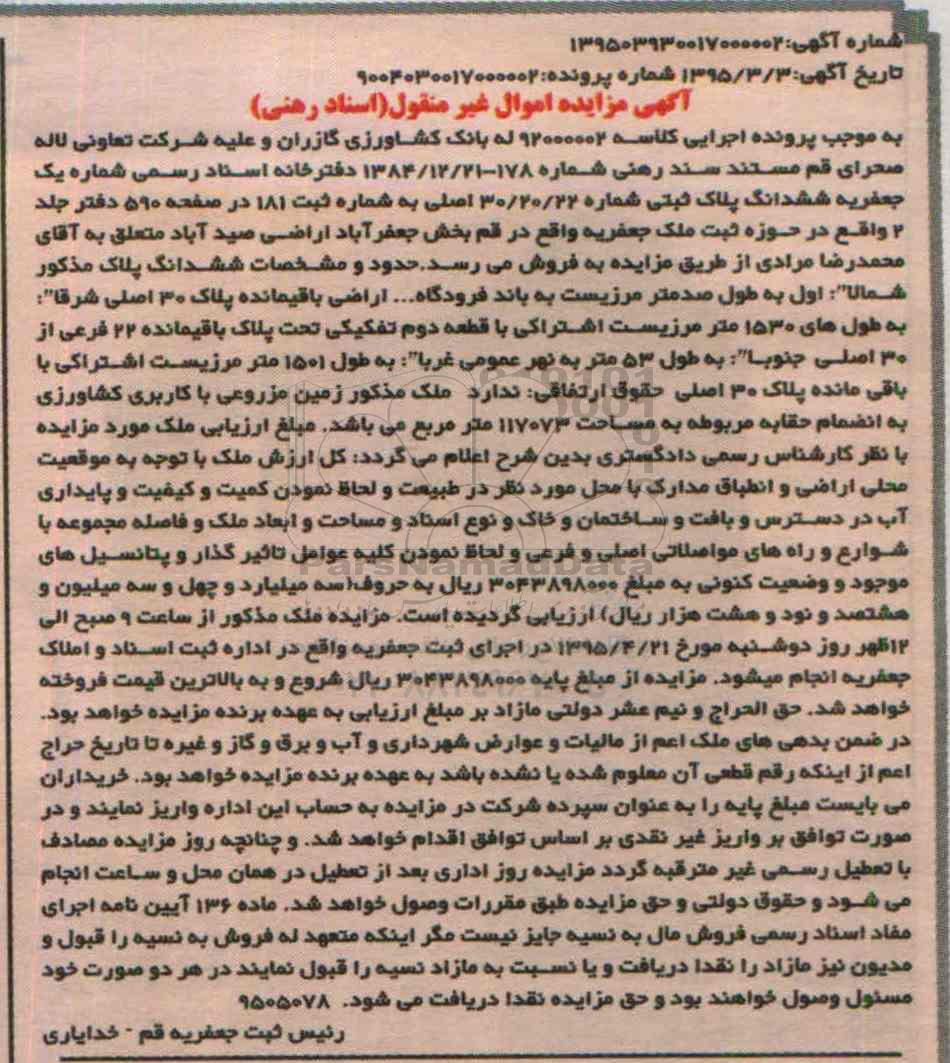 شماره آگهی:۱۳۹۵۰۳۹۳۰۰۱۷۰۰۰۰۰۲
تاریخ آگهی:۱۳۹۵/۳/۳ شماره پرونده:۹۰۰۴۰۳۰۰۱۷۰۰۰۰۰۲
آگهی مزایده اموال غیر منقول(اسناد رهنی)
به موجب پرونده اجرایی کلاسه ۹۲۰۰۰۰۰۲ له بانک کشاورزی گازران و علیه شرکت تعاونی لاله
صحرای قم مستند سند رهنی شماره ۱۷۸-۱۳۸۴/۱۲/۲۱ دفترخانه اسناد رسمی شماره یک
جعفریه ششدانگ پلاک ثبتی شماره ۳۰/۲۰/۲۲ اصلی به شماره ثبت ۱۸۱ در صفحه ۵۹۰ دفتر جلد
۲ واقع در حوزه ثبت ملک جعفریه واقع در قم بخش جعفرآباد اراضی صید آباد متعلق به آقای
محمدرضا مرادی از طریق مزایده به فروش می رسد.حدود و مشخصات ششدانگ پلاک مذکور
شمالا": اول به طول صدمتر مرزیست به باند فرودگاه... اراضی باقیمانده پلاک ۳۰ اصلی شرقا":
به طول های ۱۵۳۰ متر مرزیست اشتراکی با قطعه دوم تفکیکی تحت پلاک باقیمانده ۲۲ فرعی از
۳۰ اصلی جنوبا": به طول ۵۳ متر به نهر عمومی غربا": به طول ۱۵۰۱ متر مرزیست اشتراکی با
باقی مانده پلاک ۳۰ اصلی حقوق ارتفاقی: ندارد ملک مذکور زمین مزروعی با کاربری کشاورزی
به انضمام حقابه مربوطه به مساحت ۱۱۷۰۷۳ متر مربع می باشد. مبلغ ارزیابی ملک مورد مزایده
با نظر کارشناس رسمی دادگستری بدین شرح اعلام می گردد: کل ارزش ملک با توجه به موقعیت
محلی اراضی و انطباق مدارک با محل مورد نظر در طبیعت و لحاظ نمودن کمیت و کیفیت و پایداری
آب در دسترس و بافت و ساختمان و خاک و نوع اسناد و مساحت و ابعاد ملک و فاصله مجموعه با
شوارع و راه های مواصلاتی اصلی و فرعی و لحاظ نمودن کلیه عوامل تاثیر گذار و پتانسیل های
موجود و وضعیت کنونی به مبلغ ۳۰۴۳۸۹۸۰۰۰ ریال به حروف(سه میلیارد و چهل و سه میلیون و
هشتصد و نود و هشت هزار ریال) ارزیابی گردیده است. مزایده ملک مذکور از ساعت ۹ صبح الی
۱۲ظهر روز دوشنبه مورخ ۱۳۹۵/۴/۲۱ در اجرای ثبت جعفریه واقع در اداره ثبت اسناد و املاک
جعفریه انجام میشود. مزایده از مبلغ پایه ۳۰۴۳۸۹۸۰۰۰ ریال شروع و به بالاترین قیمت فروخته
خواهد شد. حق الحراج و نیم عشر دولتی مازاد بر مبلغ ارزیابی به عهده برنده مزایده خواهد بود.
در ضمن بدهی های ملک اعم از مالیات و عوارض شهرداری و آب و برق و گاز و غیره تا تاریخ حراج
اعم از اینکه رقم قطعی آن معلوم شده یا نشده باشد به عهده برنده مزایده خواهد بود. خریداران
می بایست مبلغ پایه را به عنوان سپرده شرکت در مزایده به حساب این اداره واریز نمایند و در
صورت توافق بر واریز غیر نقدی بر اساس توافق اقدام خواهد شد. و چنانچه روز مزایده مصادف
با تعطیل رسمی غیر مترقبه گردد مزایده روز اداری بعد از تعطیل در همان محل و ساعت انجام
می شود و حقوق دولتی و حق مزایده طبق مقررات وصول خواهد شد. ماده ۱۳۶ آیین نامه اجرای
مفاد اسناد رسمی فروش مال به نسیه جایز نیست مگر اینکه متعهد له فروش به نسیه را قبول و
مدیون نیز مازاد را نقدا دریافت و یا نسبت به مازاد نسیه را قبول نمایند در هر دو صورت خود
مسئول وصول خواهند بود و حق مزایده نقدا دریافت می شود. ۹۵۰۵۰۷۸
رئیس ثبت جعفریه قم - خدایاری
ParsNamadData